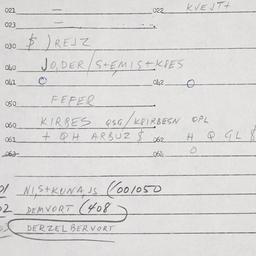 021 — 022 KVEJT+
023 —
030 $ ) REJZ
040 JO,DER/S+EMIS+KDES
041 O 042 O
050 FEFER
060 KIRBES QSG/KRIRBESN OPL
061 + QH ARBUZ $ 062 H Q GL $
063 064 O
01 NI,S+KUNA,JS (001050
02 DEMVORT (408)
DERZELBERVORT